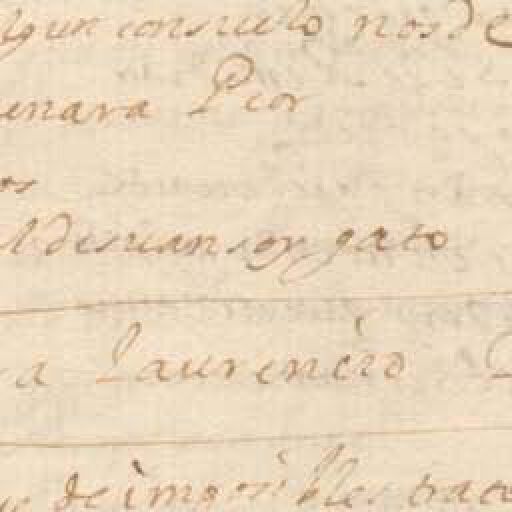 lgun consuelo nos de
enara Pior
os
el descanso y gato
a Laurencio
de imposibles trato